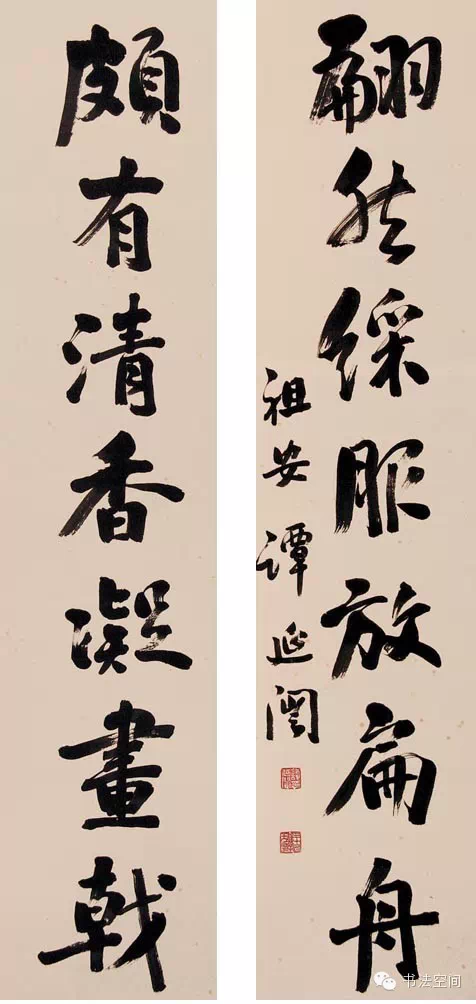 翩然綵服放扁舟
祖安譚延闓
頗有清香凝畫戟
书法空间